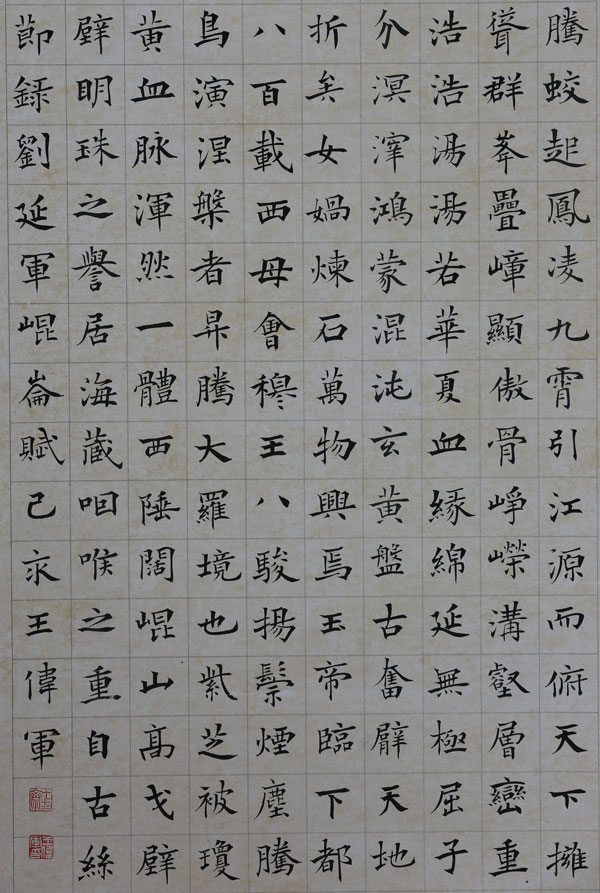 騰蛟起鳳凌九霄引江源而俯天下擁
聳群峯疊嶂顯傲骨崢嶸溝壑層巒重
浩浩湯湯若華夏血緣綿延無極屈子
分溟滓鴻蒙混沌玄黃盤古奮臂天地
折矣女媧煉石萬物興焉玉帝臨下都
八百載西母會穆王八駿揚鬃煙塵騰
鳥演涅槃者昇騰大羅境也紫芝被瓊
黃血脉渾然一體西陲闊崐山高戈壁
壁明珠之譽居海藏咽喉之重自古絲
節錄劉延軍崐崙賦己亥王偉軍